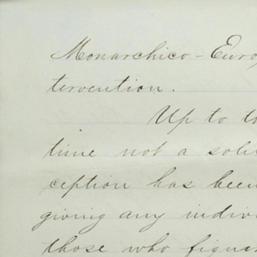 Monarchico-Euro
tervention.
Up to t
time not a soli
ception has been
giving any indivi
those who figu